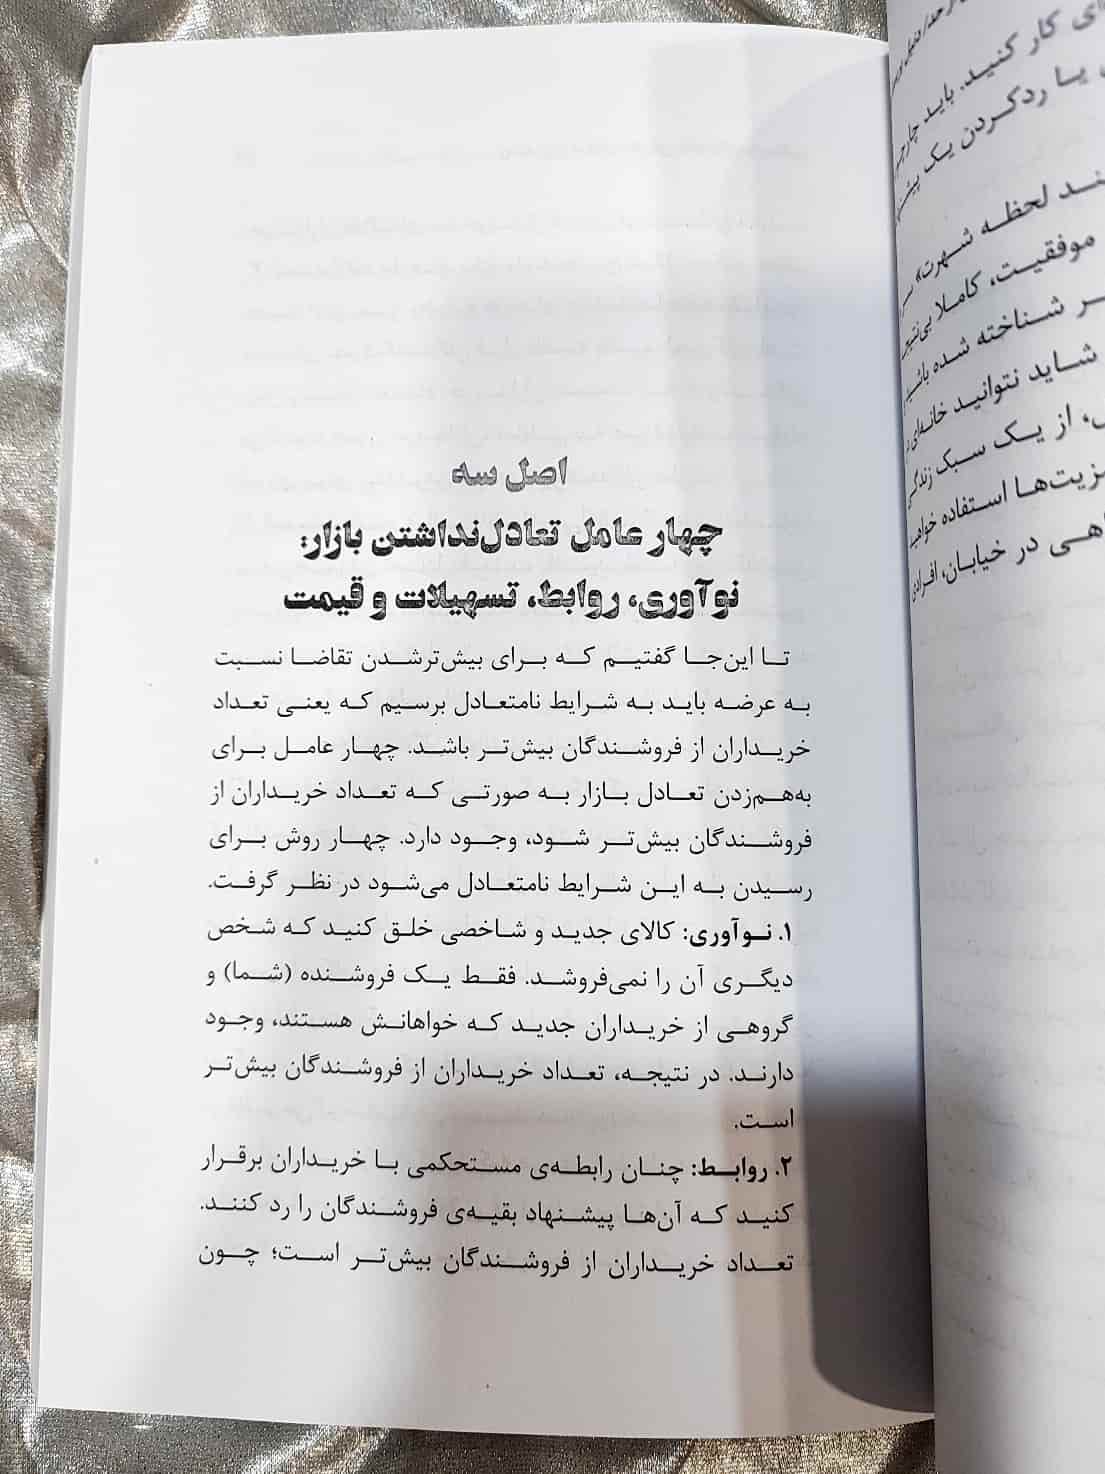 اصل سه
چهار عامل تعادل‌نداشتن بازار:
نوآوری، روابط، تسهیلات و قیمت
تا این‌جا گفتیم که برای بیش‌ترشدن تقاضا نسبت
به عرضه باید به شرایط نامتعادل برسیم که یعنی تعداد
خریداران از فروشندگان بیش‌تر باشد. چهار عامل برای
به‌هم‌زدن تعادل بازار به صورتی که تعداد خریداران از
فروشندگان بیش‌تر شود، وجود دارد. چهار روش برای
رسیدن به این شرایط نامتعادل می‌شود در نظر گرفت.
۱. نوآوری: کالای جدید و شاخصی خلق کنید که شخص
دیگری آن را نمی‌فروشد. فقط یک فروشنده (شما) و
گروهی از خریداران جدید که خواهانش هستند، وجود
دارند. در نتیجه، تعداد خریداران از فروشندگان بیش‌تر
است.
۲. روابط: چنان رابطه‌ی مستحکمی با خریداران برقرار
کنید که آن‌ها پیشنهاد بقیه‌ی فروشندگان را رد کنند.
تعداد خریداران از فروشندگان بیش‌تر است؛ چون
کار کنید. باید
یا ردکردن یک
لحظه شهرت»
موفقیت، کاملا
شناخته شده
شاید نتوانید خانه‌ای
از یک سبک زندگی
استفاده خواهید
در خیابان، افرادی